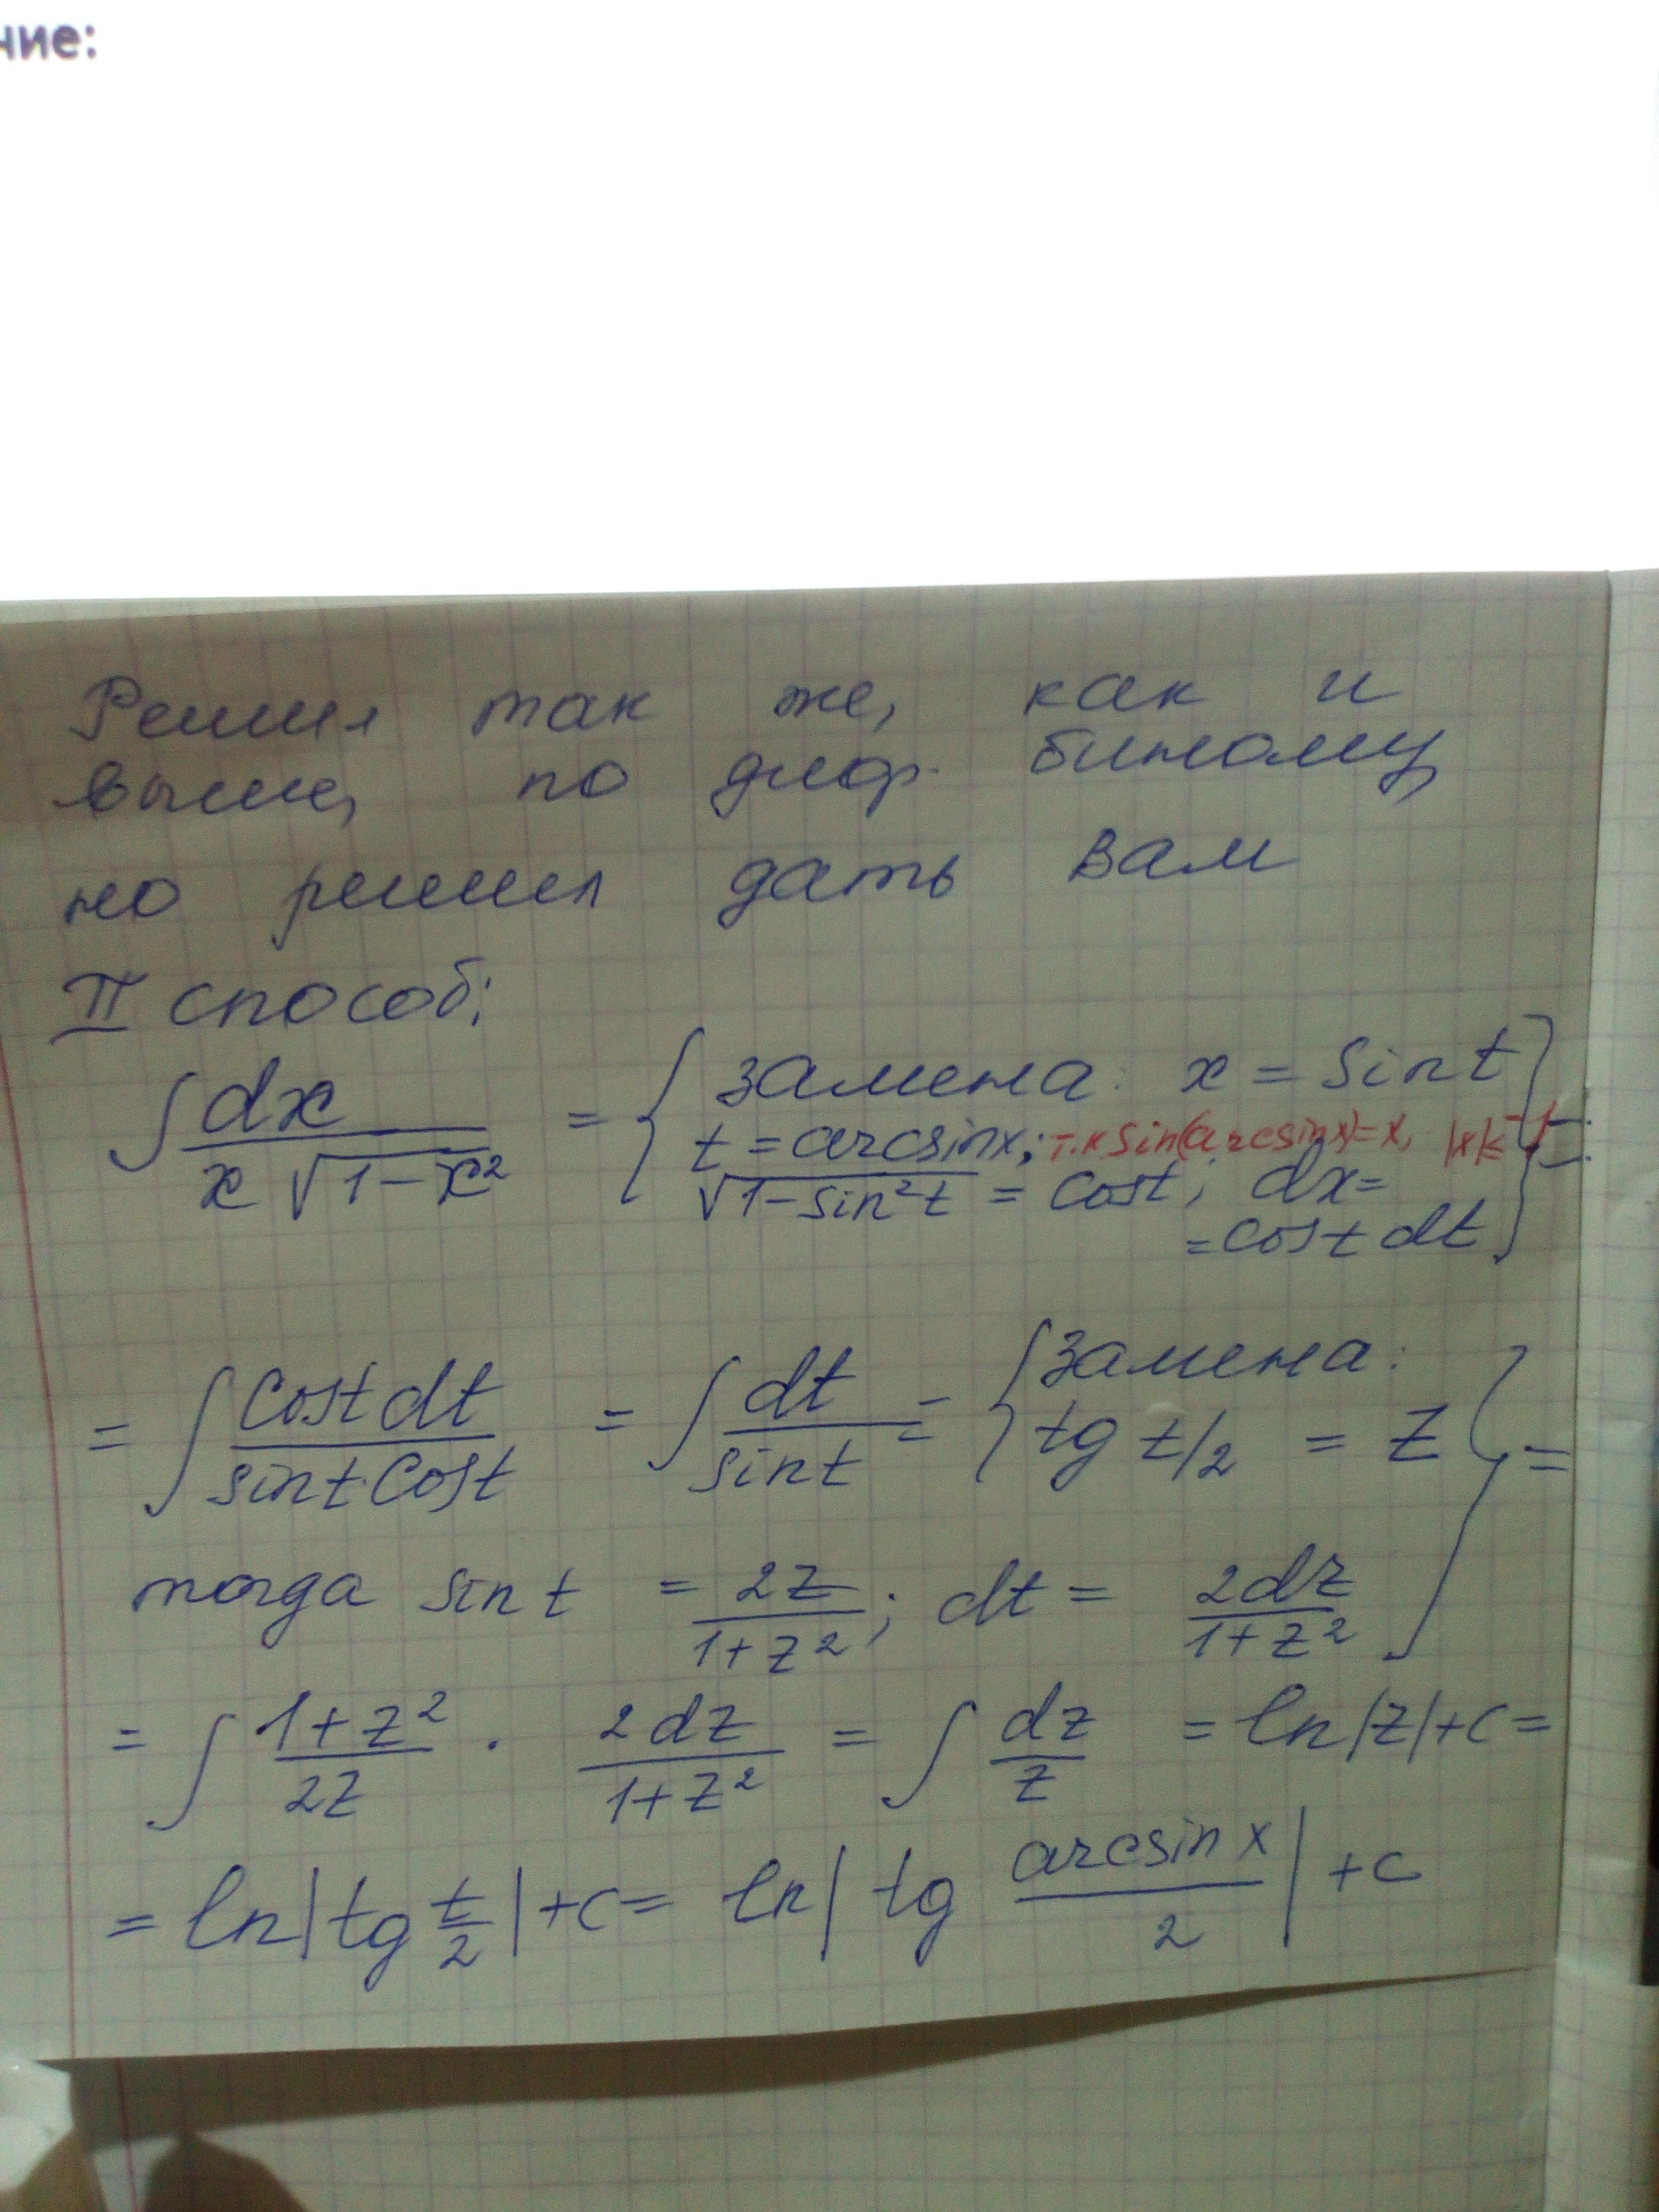 ние:
Решил так же, как и
выше, по диф. биному,
но решил дать вам
II способ:
∫ dx / (x √(1-x²)) = { замена: x = sin t
t = arcsinx; т.к sin(arcsinx)=x, |x|≤1
√(1-sin²t) = cost; dx=
=cost dt } =
= ∫ cost dt / (sint cost) = ∫ dt / sint = { замена:
tg t/2 = z
тогда sin t = 2z / (1+z²); dt = 2dz / (1+z²) } =
= ∫ (1+z²) / 2z · 2dz / (1+z²) = ∫ dz / z = ln|z|+c=
= ln|tg t/2|+c= ln|tg arcsin x / 2| +c